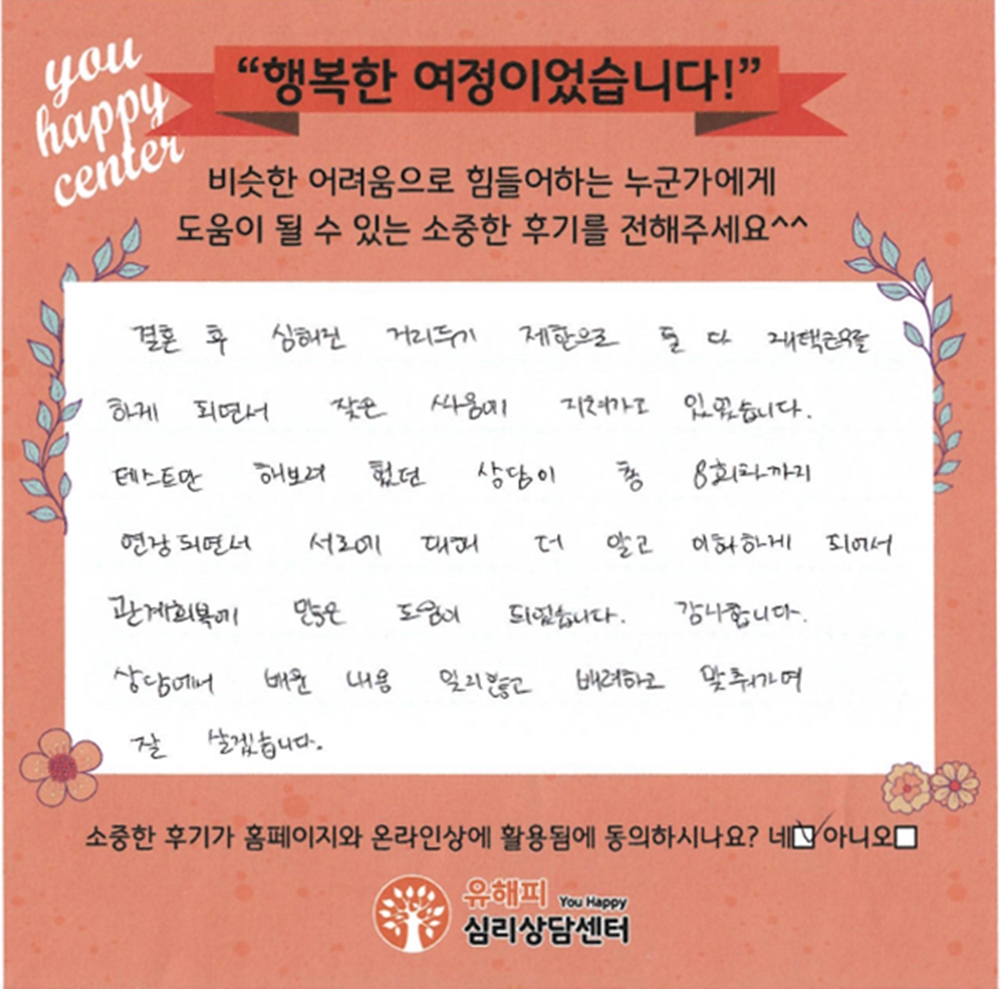 you
happy
center
“행복한 여정이었습니다!”
비슷한 어려움으로 힘들어하는 누군가에게
도움이 될 수 있는 소중한 후기를 전해주세요^^
결혼 후 심해진 거리두기 제한으로 둘 다 재택근무를
하게 되면서 잦은 싸움에 지쳐가고 있었습니다.
테스트만 해보려 했던 상담이 총 8회차까지
연장되면서 서로에 대해 더 알고 이해하게 되어서
관계회복에 많은 도움이 되었습니다. 감사합니다.
상담에서 배운 내용 잊지않고 배려하고 맞춰가며
잘 살겠습니다.
소중한 후기가 홈페이지와 온라인상에 활용됨에 동의하시나요? 네 아니오
유해피 You Happy
심리상담센터